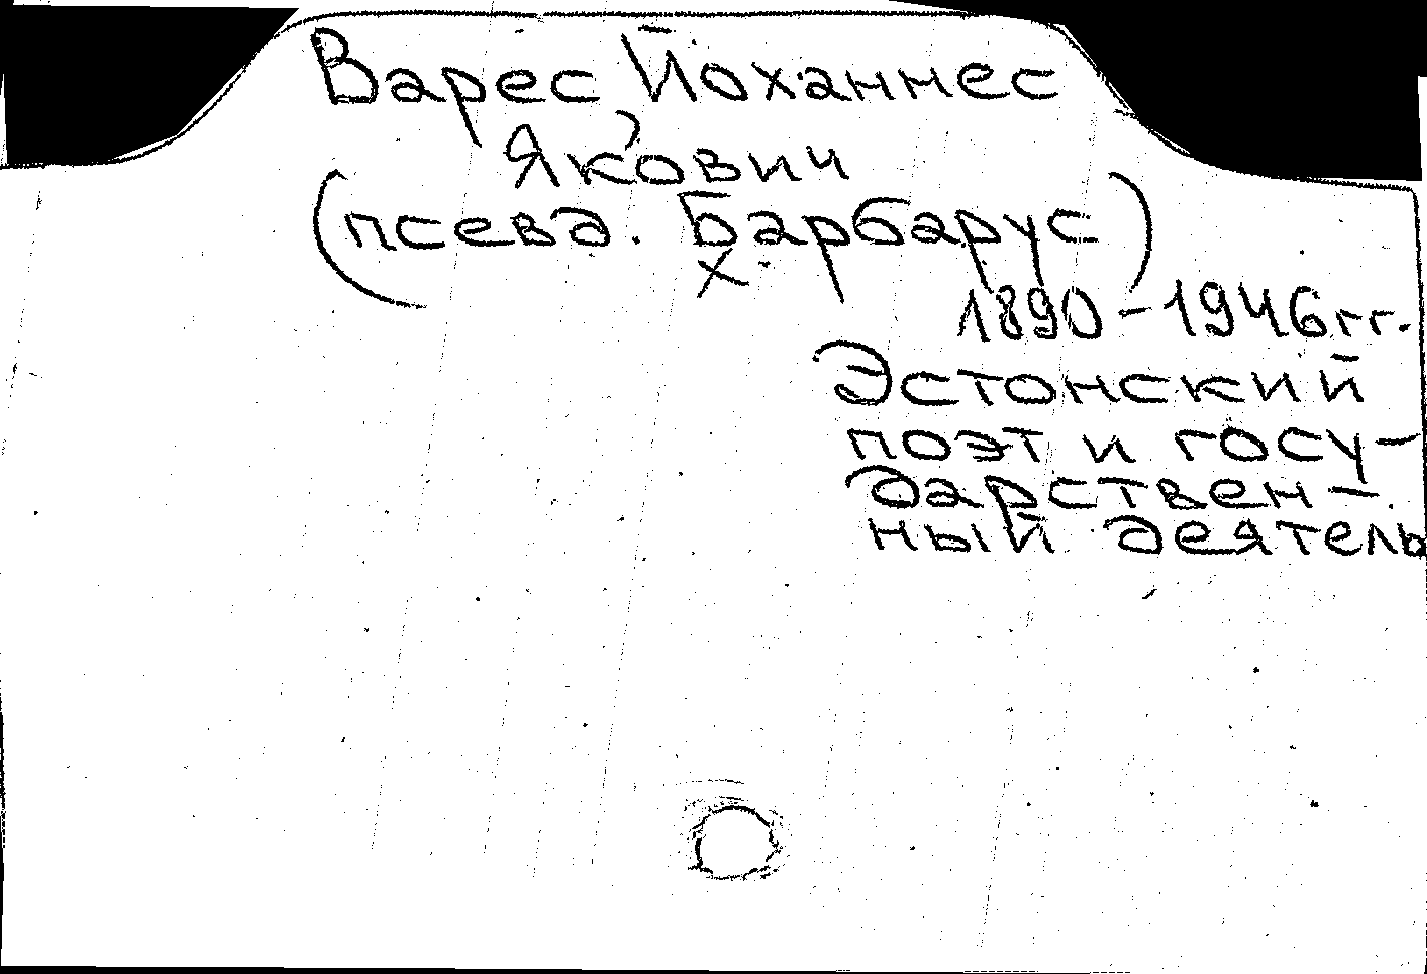 Варес, Йоханнес
Якович
(псевд. Барбарус)
х
1890-1946гг.
Эстонский
поэт и госу-
дарствен-
ный деятель